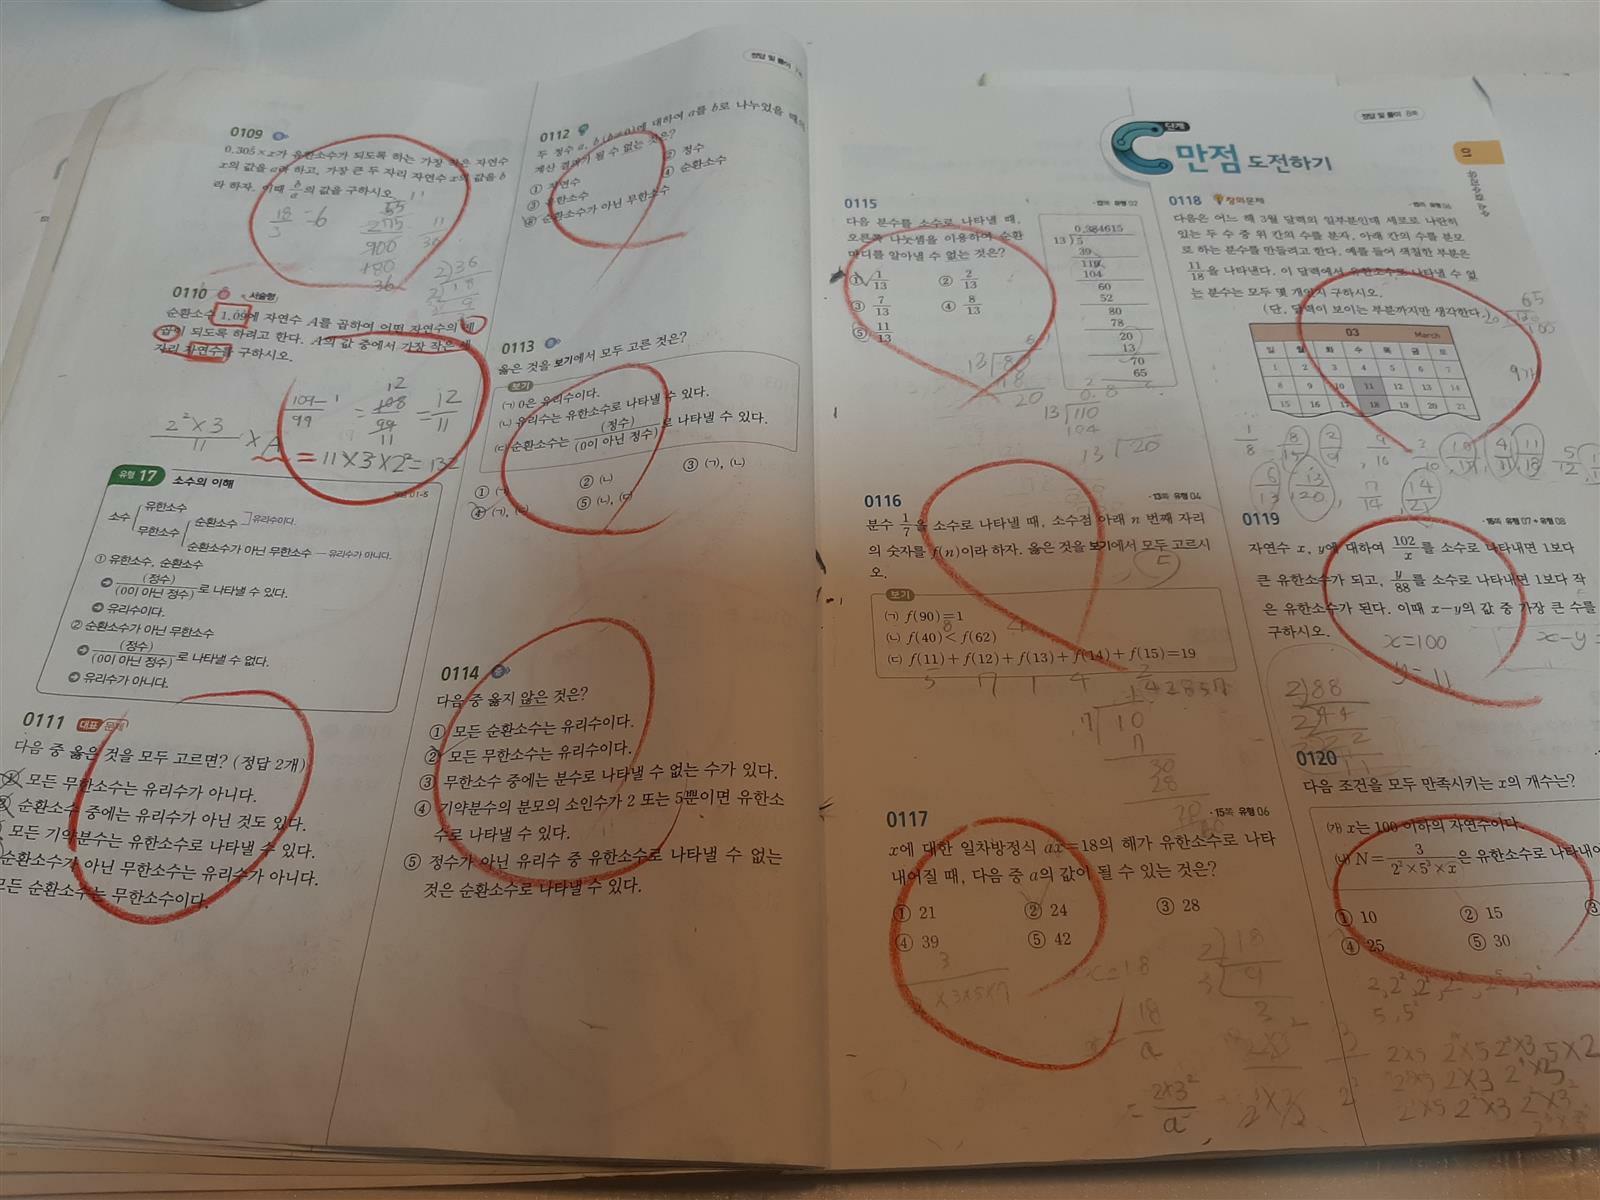 정답 및 풀이
0109
0.305×x가 유한소수가 되도록 하는 가장 작은 자연수
x의 값을 a라 하고, 가장 큰 두 자리 자연수 x의 값을 b
라 하자. 이때 b/a의 값을 구하시오.
18/3 =6
11
55
275
900
180
36
11
36
2)36
2)18
9
0110 서술형
순환소수 1.09에 자연수 A를 곱하여 어떤 자연수의 제
곱이 되도록 하려고 한다. A의 값 중에서 가장 작은 세
자리 자연수를 구하시오.
109-1/99 = 108/99 = 12/11
12
11
2²×3/11 ×A
=11×3×2²=132
유형 17 소수의 이해
개념 01-5
소수
유한소수
무한소수
순환소수
유리수이다.
순환소수가 아닌 무한소수 — 유리수가 아니다.
① 유한소수, 순환소수
➔ (정수)/(0이 아닌 정수)로 나타낼 수 있다.
➔ 유리수이다.
② 순환소수가 아닌 무한소수
➔ (정수)/(0이 아닌 정수)로 나타낼 수 없다.
➔ 유리수가 아니다.
0111 대표 문제
다음 중 옳은 것을 모두 고르면? (정답 2개)
모든 무한소수는 유리수가 아니다.
순환소수 중에는 유리수가 아닌 것도 있다.
모든 기약분수는 유한소수로 나타낼 수 있다.
순환소수가 아닌 무한소수는 유리수가 아니다.
모든 순환소수는 무한소수이다.
0112
두 정수 a, b (b≠0)에 대하여 a를 b로 나누었을 때의
계산 결과가 될 수 없는 것은?
① 자연수
② 정수
③ 유한소수
④ 순환소수
⑤ 순환소수가 아닌 무한소수
0113
옳은 것을 보기에서 모두 고른 것은?
보기
(ㄱ) 0은 유리수이다.
(ㄴ) 유리수는 유한소수로 나타낼 수 있다.
(ㄷ) 순환소수는 (정수)/(0이 아닌 정수)로 나타낼 수 있다.
① (ㄱ)
② (ㄴ)
③ (ㄱ), (ㄴ)
④ (ㄱ), (ㄷ)
⑤ (ㄴ), (ㄷ)
0114
다음 중 옳지 않은 것은?
① 모든 순환소수는 유리수이다.
② 모든 무한소수는 유리수이다.
③ 무한소수 중에는 분수로 나타낼 수 없는 수가 있다.
④ 기약분수의 분모의 소인수가 2 또는 5뿐이면 유한소
수로 나타낼 수 있다.
⑤ 정수가 아닌 유리수 중 유한소수로 나타낼 수 없는
것은 순환소수로 나타낼 수 있다.
정답 및 풀이 8쪽
C 단계
만점 도전하기
01
유리수와 순환소수
0115
유형 02
다음 분수를 소수로 나타낼 때,
오른쪽 나눗셈을 이용하여 순환
마디를 알아낼 수 없는 것은?
① 1/13
② 2/13
③ 7/13
④ 8/13
⑤ 11/13
0.384615
13)5
39
110
104
60
52
80
78
20
13
70
65
13)110
104
13)20
0116
13쪽 유형 04
분수 1/7을 소수로 나타낼 때, 소수점 아래 n번째 자리
의 숫자를 f(n)이라 하자. 옳은 것을 보기에서 모두 고르시
오.
5
보기
(ㄱ) f(90)=1
(ㄴ) f(40)<f(62)
8 4
(ㄷ) f(11)+f(12)+f(13)+f(14)+f(15)=19
5 7 1 4 2
142857
7)10
7
30
28
20
0117
15쪽 유형 06
x에 대한 일차방정식 ax=18의 해가 유한소수로 나타
내어질 때, 다음 중 a의 값이 될 수 있는 것은?
① 21
② 24
③ 28
④ 39
⑤ 42
x=18
18/a
=2×3²/a
2)18
3)9
3
0118 창의문제
유형 06
다음은 어느 해 3월 달력의 일부분인데 세로로 나란히
있는 두 수 중 위 칸의 수를 분자, 아래 칸의 수를 분모
로 하는 분수를 만들려고 한다. 예를 들어 색칠한 부분은
11/18을 나타낸다. 이 달력에서 유한소수로 나타낼 수 없
는 분수는 모두 몇 개인지 구하시오.
(단, 달력이 보이는 부분까지만 생각한다.)
03 March
일 월 화 수 목 금 토
1 2 3 4 5 6 7
8 9 10 11 12 13 14
15 16 17 18 19 20 21
1/8 8/15 2/9 9/16 3/10 10/17 4/11 11/18 5/12
6/13 13/20 7/14 14/21
0119
16쪽 유형 07+유형 08
자연수 x, y에 대하여 102/x를 소수로 나타내면 1보다
큰 유한소수가 되고, y/88를 소수로 나타내면 1보다 작
은 유한소수가 된다. 이때 x-y의 값 중 가장 큰 수를
구하시오.
x=100
y=11
x-y=
2)88
2)44
0120
다음 조건을 모두 만족시키는 x의 개수는?
(가) x는 100 이하의 자연수이다.
(나) N=3/(2²×5³×x)은 유한소수로 나타내어
① 10
② 15
④ 25
⑤ 30